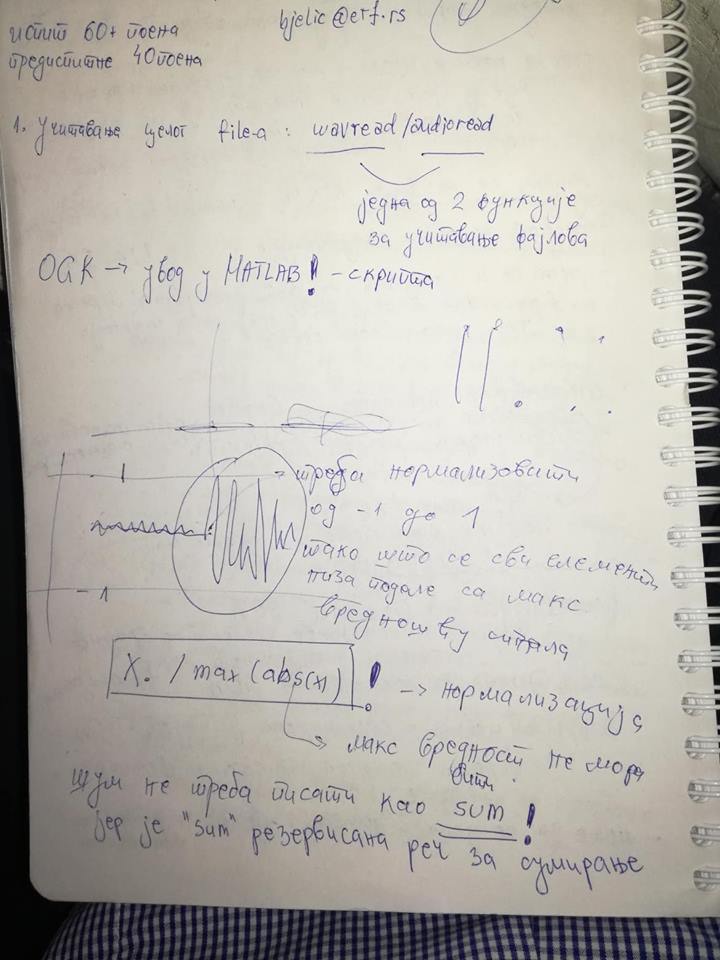 испит 60+ поена
предиспитне 40 поена
bjelic@etf.rs
1. Учитавање целог file-a : wavread/audioread
једна од 2 функције
за учитавање фајлова
OGK → увод у MATLAB! - скрипта
1
-1
треба нормализовати
од -1 до 1
тако што се сви елементи
низа поделе са макс
вредношћу сигнала
X. / max(abs(x)) ! → нормализација
макс вредност не мора
бити
шум не треба писати као sum!
јер је "sum" резервисана реч за сумирање